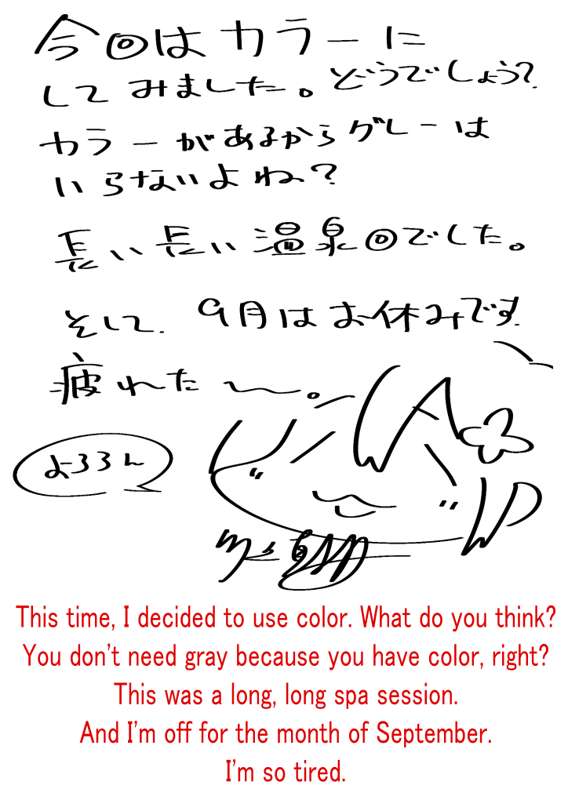 今回はカラーに
してみました。どうでしょう?
カラーがあるからグレーは
いらないよね?
長い長い温泉回でした。
そして、9月はお休みです
疲れた〜。
よろろん
This time, I decided to use color. What do you think?
You don't need gray because you have color, right?
This was a long, long spa session.
And I'm off for the month of September.
I'm so tired.